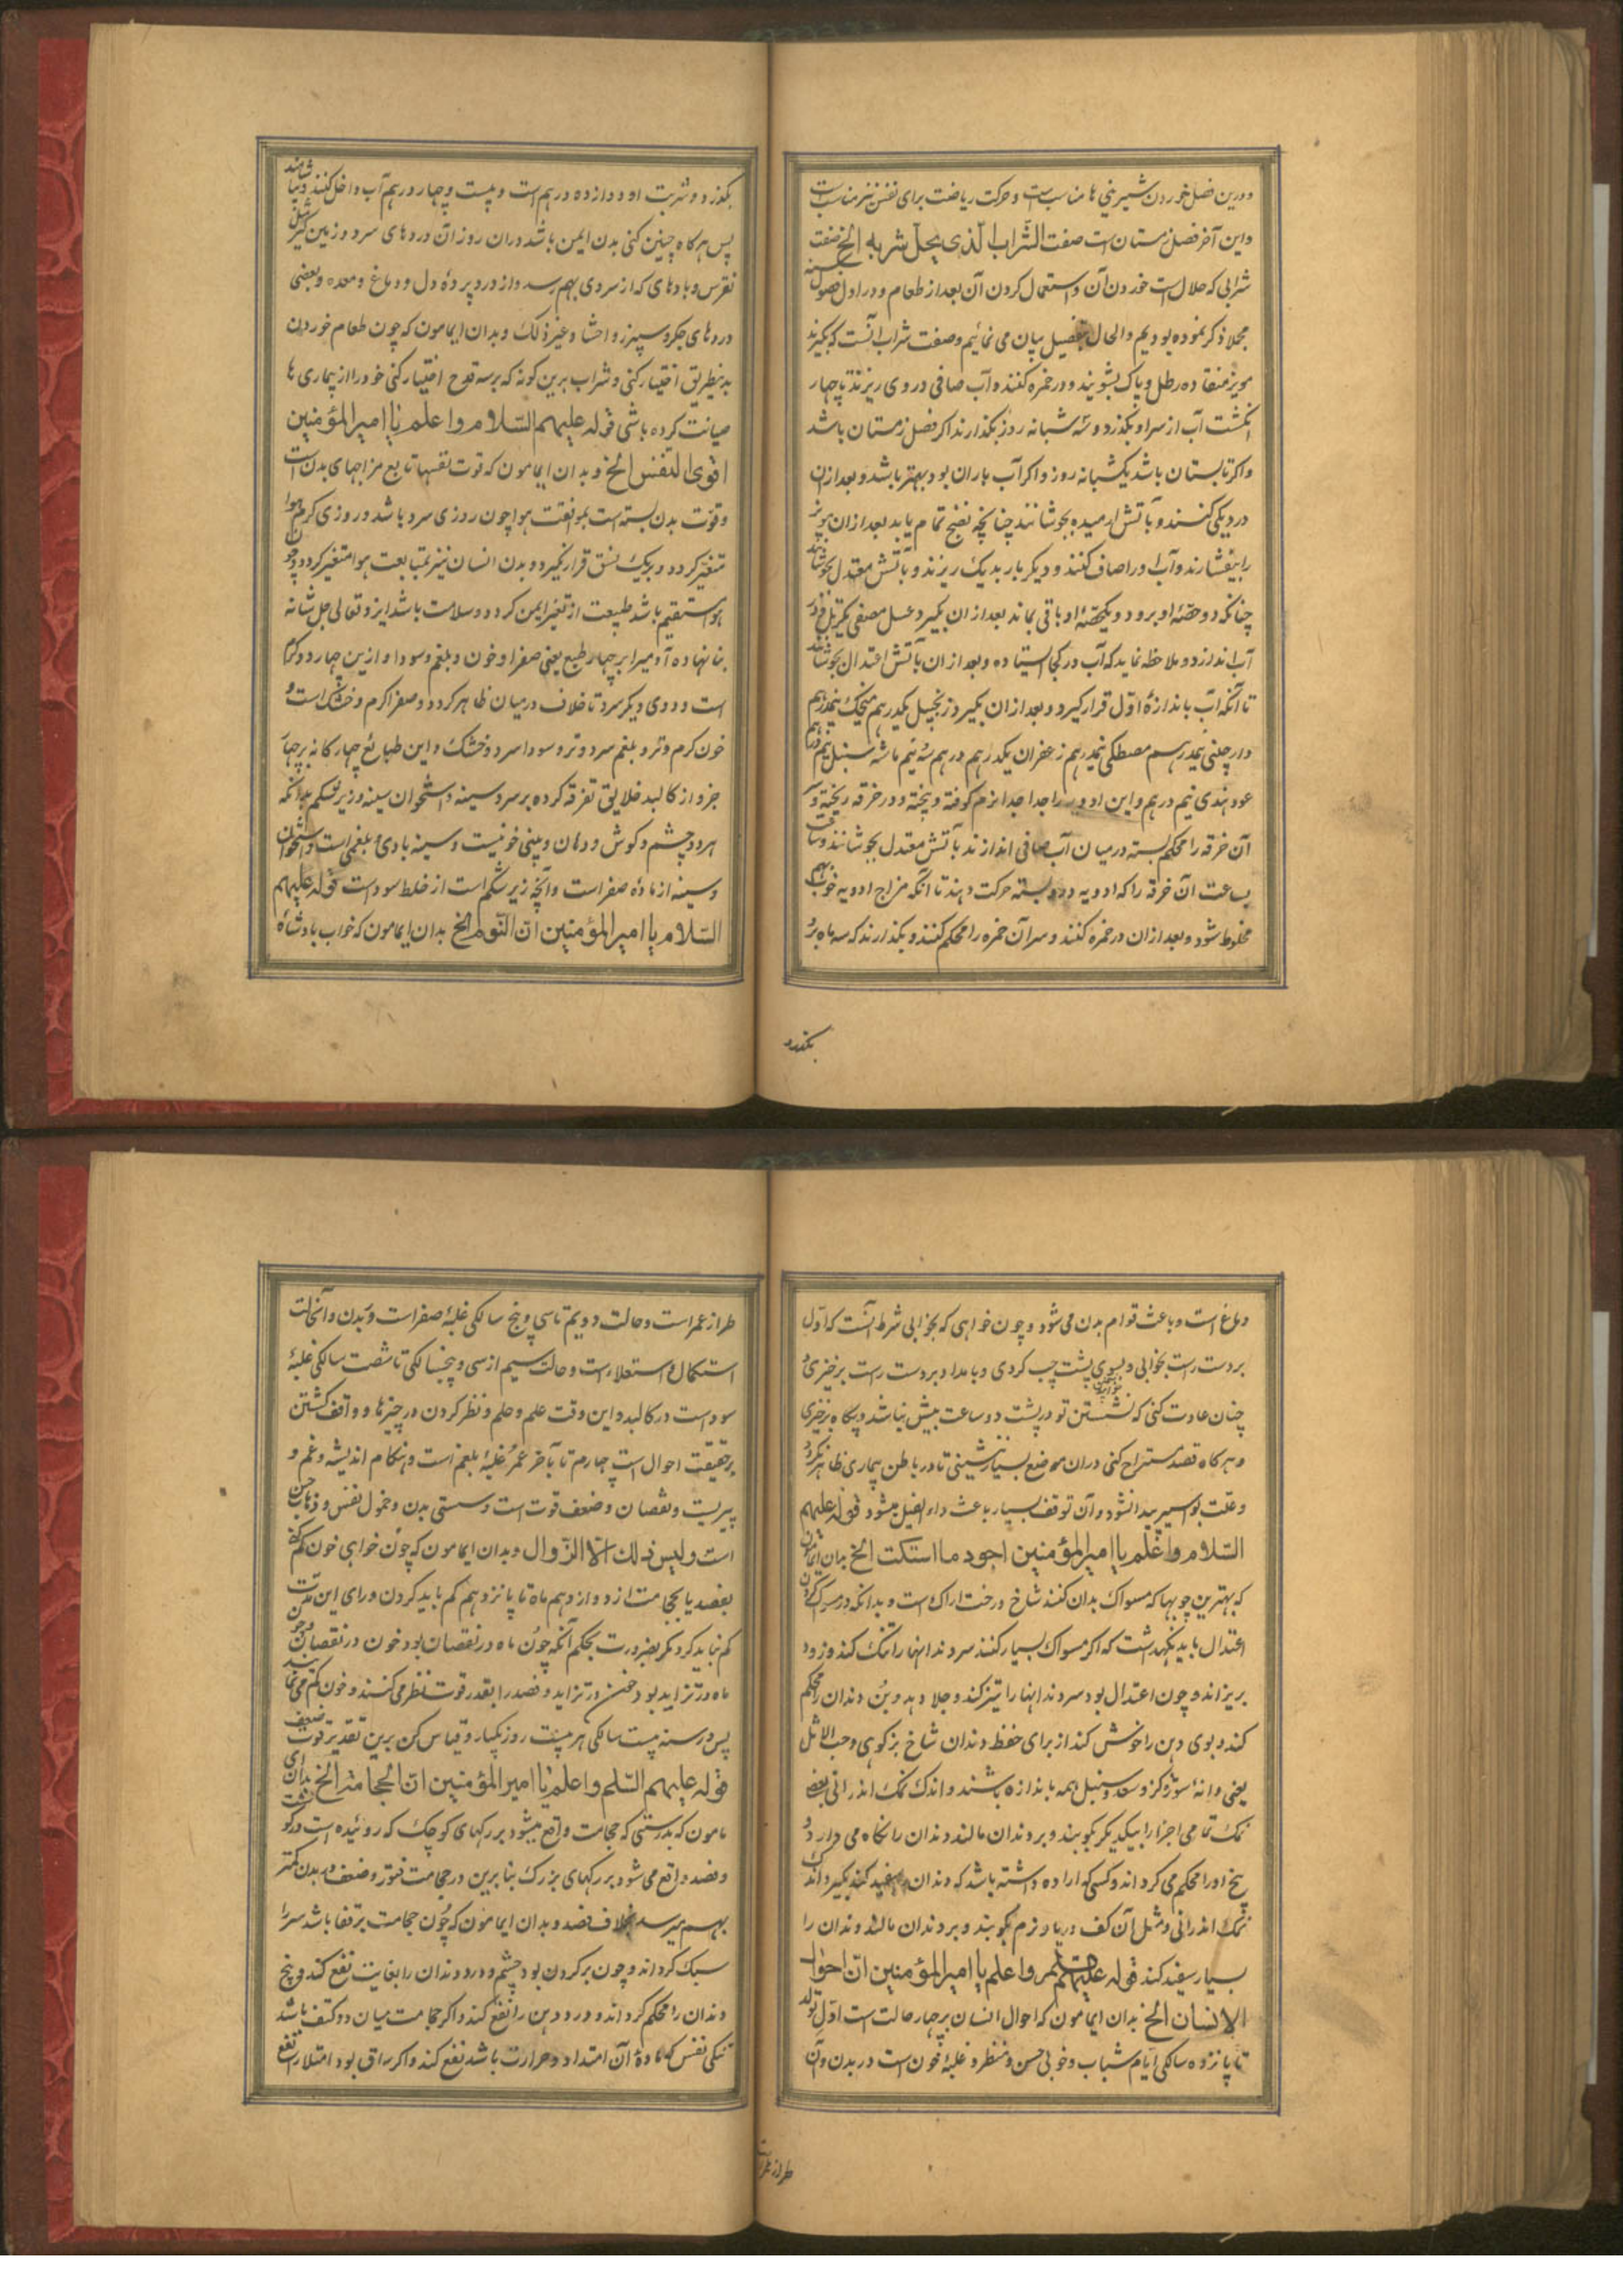 ودرین فصل خوردن شیرینی ها مناسب است و حرکت ریاضت برای نفس نیز مناسب است
واین آخر فصل زمستان است صفت الشّراب الّذی یحلّ شربه الخ صفت
شرابی که حلال است خوردن آن و استعمال کردن آن بعد از طعام و در اول فصول
مجملا ذکر نموده بودیم والحال بتفصیل بیان می نمائیم وصفت شراب آنست که بگیرند
مویز منقا ده رطل و پاک بشویند و در خمره کنند و آب صافی در وی ریزند تا چهار
انکشت آب از سر او بگذرد و سه شبانه روز بگذارند اگر فصل زمستان باشد
واکر تابستان باشد یکشبانه روز و اکر آب باران بود بهتر باشد و بعد از ان
در دیکی کنند و بآتش ارمیده بجوشانند چنانچه نضج تمام یابد بعد ازان مویز
را بیفشارند و آب او را صاف کنند و دیکر بار بدیک ریزند و بآتش معتدل بجوشانند
چنانکه دو حصّه او برود و یکحصّه او باقی بماند بعد ازان بگیرد عسل مصفی یکرطل و در
آب اندازد و ملاحظه نماید که آب در کجا ایستاده و بعد ازان بآتش اعتدال بجوشانند
تا آنکه آب باندازهٔ اوّل قرار گیرد و بعد ازان بگیرد زنجبیل یکدرهم میخک نیمدرهم
دارچینی نیمدرهم مصطکی نیمدرهم زعفران یکدرهم سنبل نیم درهم
عود هندی نیم درهم و این ادویه را جدا جدا نرم کوفته و بیخته و در خرقه ریخته و سر
آن خرقه را محکم بسته در میان آب صافی اندازند بآتش معتدل بجوشانند و ساعت
بساعت آن خرقه را که ادویه در وبسته حرکت دهند تا آنکه مزاج ادویه خوب بهم
مخلوط شود و بعد ازان در خمره کنند و سر آن خمره را محکم کنند و بگذارند که سه ماه برو
بگذرد
بکذرد و شربت او دوازده درهم است و بیست و چهار درهم آب داخل کنند و بیاشامند
پس هر کاه چنین کنی بدن ایمن باشد دران روز آن دردهای سرد و زمین کیر مثل
نقرس و بادهای که از سردی بهم رسد و از درد پردهٔ دل و دماغ و معده و بعضی
دردهای جکر و سپرز و احشا و غیر ذلک و بدان ایمامون که چون طعام خوردن
بدینطریق اختیار کنی و شراب برین کونه که بر سه قدح اختیار کنی خود را از بیماری ها
صیانت کرده باشی قوله علیهم السّلام واعلم یا امیر المؤمنین
اقوی النفس الخ و بدان ایمامون که قوت نفسها تابع مزاجهای بدن است
وقوّت بدن بسته است بموافقت هوا چون روزی سرد باشد و روزی کرم هوا
متغیّر کردد و بیک نسق قرار نکیرد و بدن انسان نیز بمتابعت هوا متغیر کردد و چون
هوا مستقیم باشد طبیعت از تغیر ایمن کردد و سلامت باشد ایزد تعالی جلّ شانه
بنا نهاده آدمی را بر چهار طبع یعنی صفرا و خون و بلغم و سودا و ازین چهار دو کرم
است و دوی دیکر سرد تا خلاف درمیان ظاهر کردد و صفرا کرم و خشک است و
خون کرم و تر و بلغم سرد و تر و سودا سرد و خشک و این طبایع چهار کانه بر چهار
جزو از کالبد خلایق تفرقه کرده بر سر و سینه و استخوان سینه و زیر شکم بدانکه
هر دو چشم و کوش و دهان و بینی خونیست و سینه بادی و بلغمی است و استخوان
وسینه از مادهٔ صفراست و آنچه زیر شکم است از خلط سوداست قوله علیهم
السّلام یا امیر المؤمنین انّ النّوم الخ بدان ایمامون که خواب پادشاه
دماغ است و باعث قوام بدن می شود و چون خواهی که بخوابی شرط آنست که اوّل
بر دست راست بخوابی و بسوی پشت چپ کردی و بامداد بر دست راست برخیزی و
چنان عادت کنی که نشستن تو در پشت دو ساعت بیش نباشد و پکاه برخیزی
وهر کاه قصد مستراح کنی دران موضع بسیار ننشینی تا در باطن بیماری ظاهر نکردد
وعلّت بواسیر پیدا نشود و آن توقف بسیار باعث داء الفیل میشود قوله علیهم
السّلام واعلم یا امیر المؤمنین اجود ما استکت الخ بدان ایمامون
که بهترین چوبها که مسواک بدان کنند شاخ درخت اراک است و بدانکه در مسواک کردن
اعتدال باید نکهداشت که اکر مسواک بسیار کنند سر دندانها را تنک کند و زود
بریزاند و چون اعتدال بود سر دندانها را تیز کند و جلا دهد و بُن دندان را محکم
کند و بوی دهن را خوش کند از برای حفظ دندان شاخ بز کوهی و حب الاثل
یعنی دانهٔ شوره کز و سعد و سنبل همه باندازه باشند و اندک نمک اندرانی بعض
نمک تمامی اجزا را بیکدیکر بکوبند و بر دندان مالند دندان را نکاه می دارد و
بیخ او را محکم می کرداند و کسی که اراده داشته باشد که دندان سفید کند بکیرد اندک
نمک اندرانی و مثل آن کف دریا و نرم بکوبند و بر دندان مالند و دندان را
بسیار سفید کند قوله علیهم واعلم یا امیر المؤمنین انّ احوال
الانسان الخ بدان ایمامون که احوال انسان بر چهار حالت است اوّل تولد
تا پانزده سالکی ایام شباب و خوبی حسن و منظر و غلبهٔ خون است در بدن و آن
طراز عمراست
طراز عمر است و حالت دویم تا سی و پنج سالکی غلبهٔ صفراست و بَدن و آنحالت
استکمال و استعلاء است و حالت سیم از سی و پنجسالکی تا شصت سالکی غلبهٔ
سوداست در کالبد و این وقت علم و حلم و نظر کردن در چیزها و واقف کشتن
بر حقیقت احوال است چهارم تا بآخر عمرُ غلبهٔ بلغم است و هنکام اندیشه و غم و
پیریست و نقصان و ضعف قوت است و سستی بدن و خمول نفس و ذهاب حسن
است ولیس ذلک الّا الزّوال و بدان ایمامون که چون خواهی خون کم کنی
بفصد یا بحجامت از دوازدهم ماه تا پانزدهم کم باید کردن ورای این مدت
کم نباید کرد مکر بضرورت بحکم آنکه چون ماه در نقصان بود خون در نقصان و چون
ماه در تزاید بود خون در تزاید و فصد را بقدر قوت نظر می کنند و خون کم می نمایند
پس در سنه بیست سالکی هر بیست روز یکبار و قیاس کن برین تقدیر قوت ضعیف
قوله علیهم السّلم واعلم یا امیر المؤمنین انّ الحجامة الخ بدان ای
مامون که بدرستی که حجامت واقع میشود بر رکهای کوچک که روئیده است در کوشت
وفصد واقع می شود بر رکهای بزرک بنابرین در حجامت فتور و ضعف در بدن کمتر
بهم میرسد بخلاف فصد و بدان ایمامون که چون حجامت بر قفا باشد سر را
سبک کرداند و چون بر کردن بود چشم و درد دندان را بغایت نفع کند و بیخ
دندان را محکم کرداند و درد دهن را نفع کند و اکر حجامت میان دو کتف باشد
تنکی نفس که مادهٔ آن امتداد و حرارت باشد نفع کند و اکر ساق بود امتلا را نفع